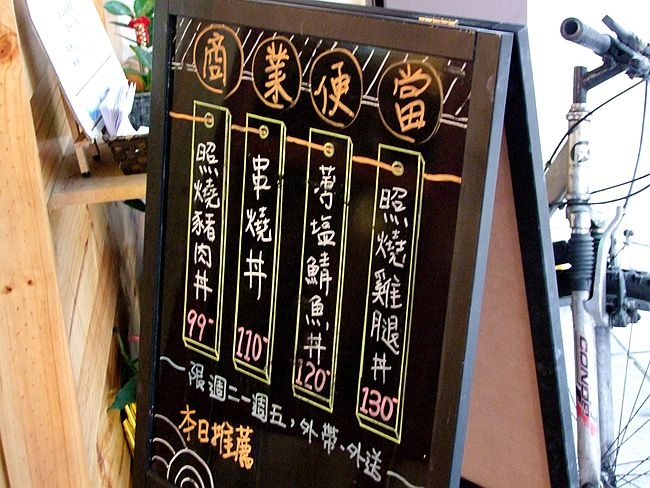 商業便當
照燒豬肉丼 99-
串燒丼 110-
薄塩鯖魚丼 120-
照燒雞腿丼 130-
限週一~週五，外帶、外送
本日推薦